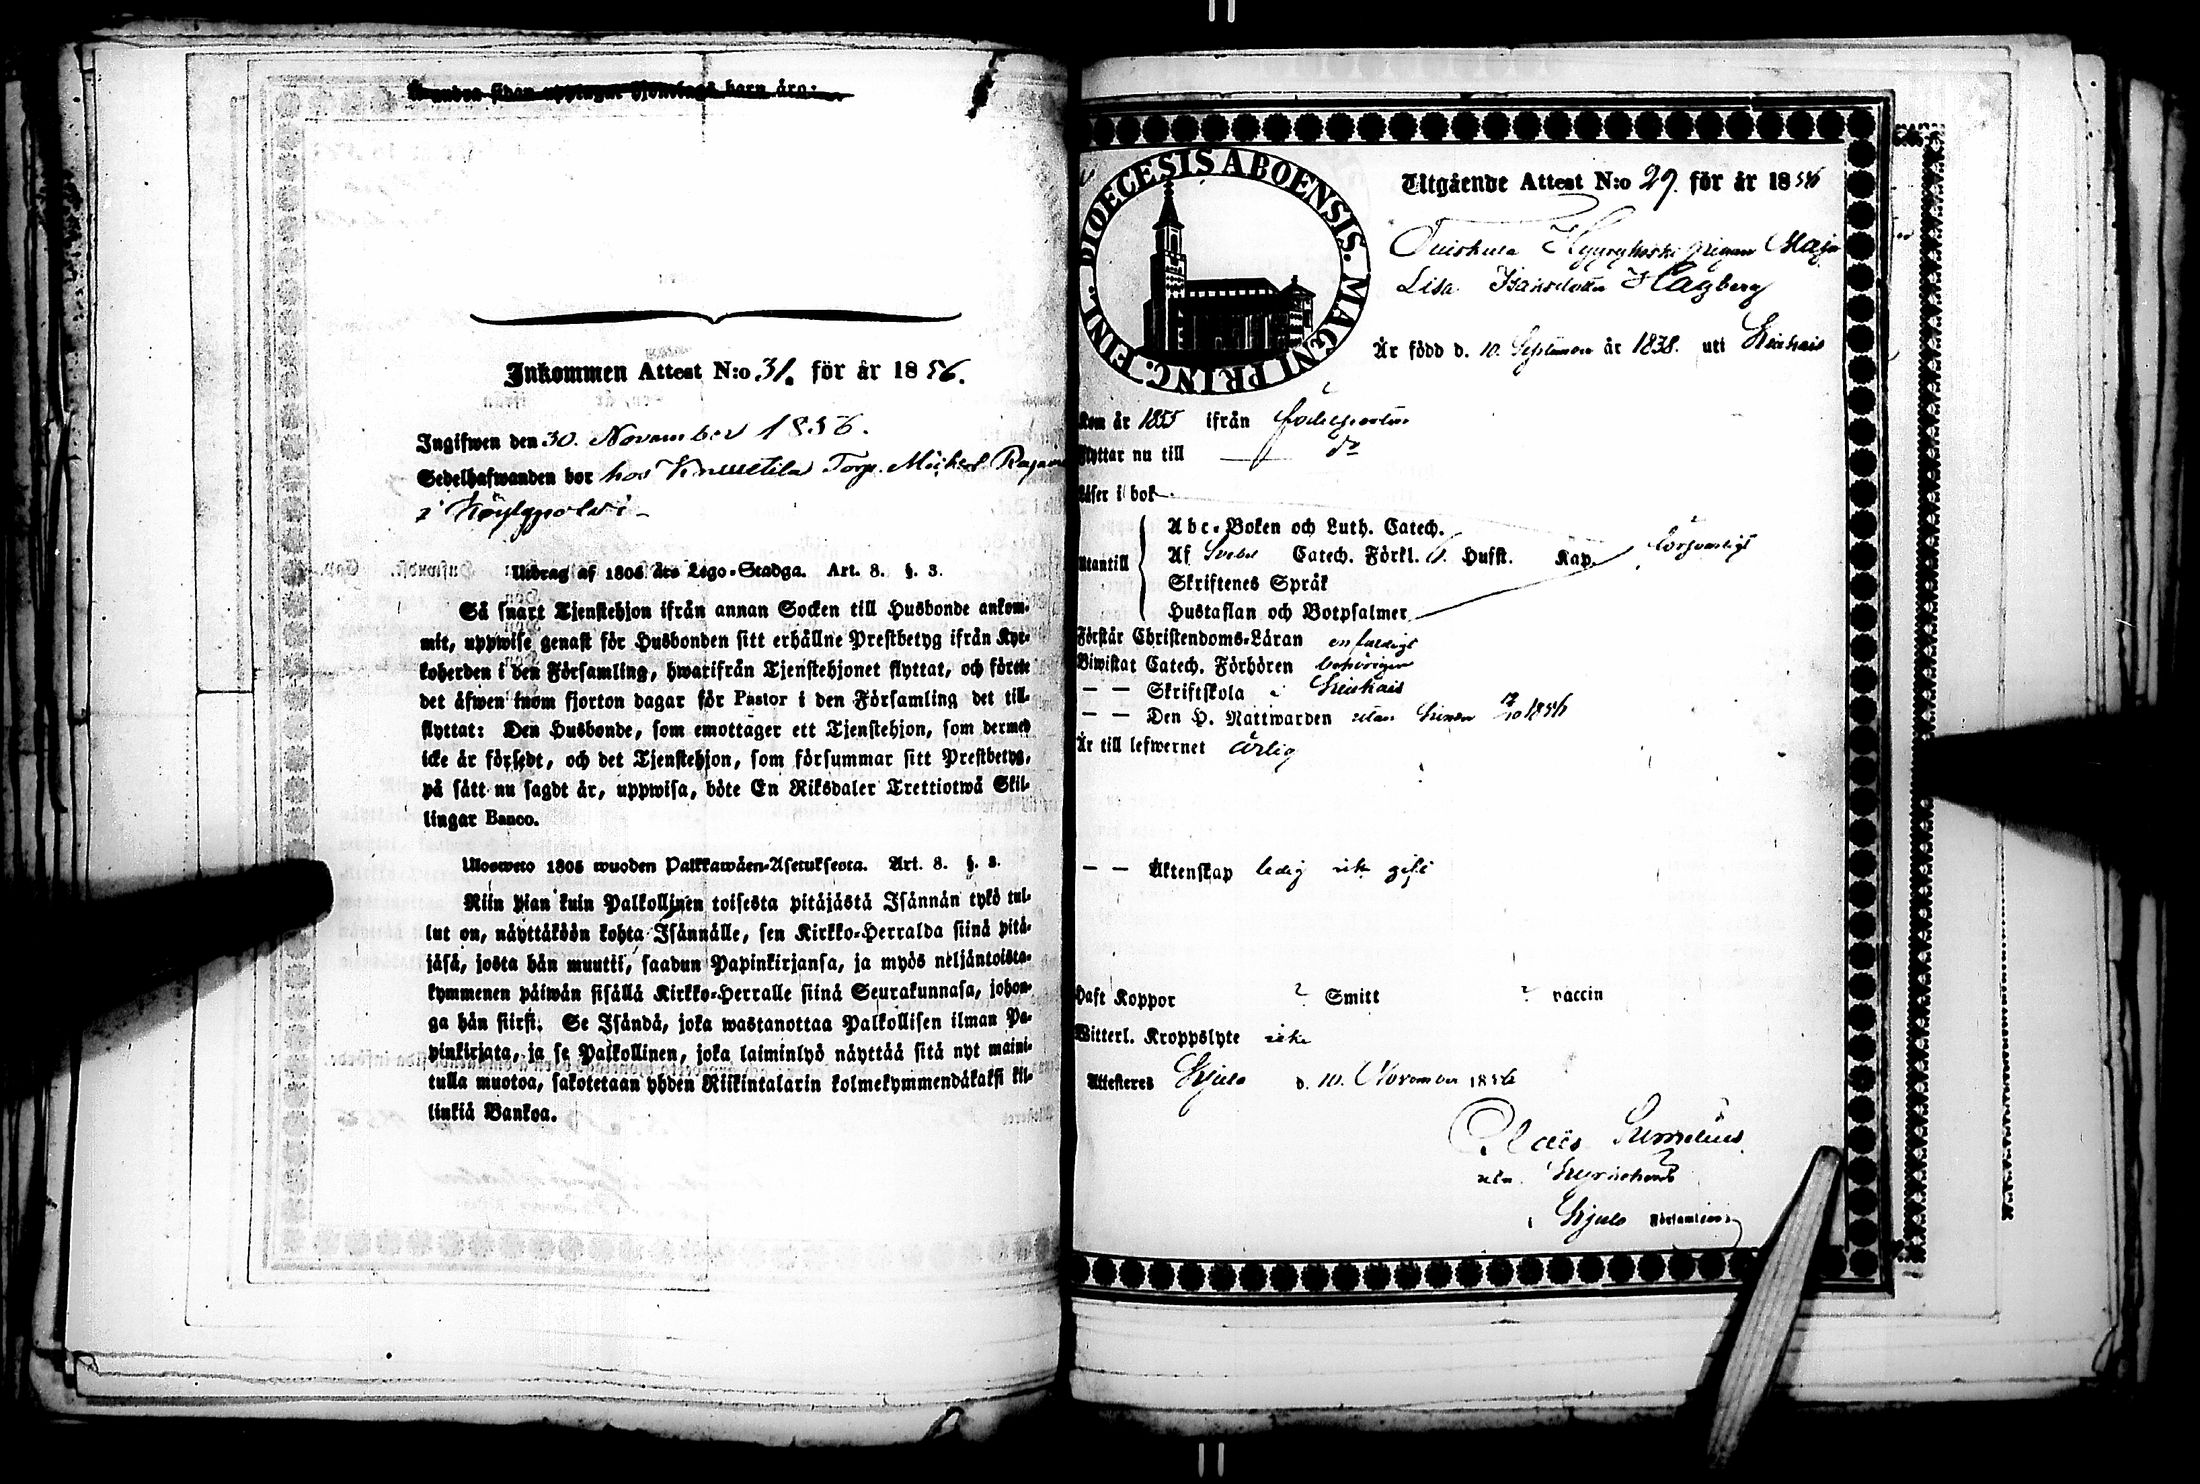 Å andra sidan upptagne Hjonelags barn äro:
Inkommen Attest N:o 31. för år 1856.
Ingifwen den 30. November 1856.
Sedelhafwanden bor hos Knuutila Torp. Michel
i Köylypolvi
Utdrag af 1805 års Lego-Stadga. Art. 8. §. 3.
Så snart Tjenstehjon ifrån annan Socken till Husbonde ankom-
mit, uppwise genast för Husbonden sitt erhållne Prestbetyg ifrån Kyr-
koherden i den Församling, hwarifrån Tjenstehjonet flyttat, och förete
det äfwen inom fjorton dagar för Pastor i den Församling det till-
flyttat: Den Husbonde, som emottager ett Tjenstehjon, som dermed
icke är försedt, och det Tjenstehjon, som försummar sitt Prestbetyg,
på sätt nu sagdt är, uppwisa, böte En Riksdaler Trettiotwå Skil-
lingar Banco.
Uloswето 1805 wuoden Palkkawäen-Asetuksesta. Art. 8. §. 3.
Niin pian kuin Palkollinen toisesta pitäjästä Isännän tykö tul-
lut on, näyttäköön kohta Isännälle, sen Kirkko-Herralda siinä pitä-
jäsä, josta hän muutti, saadun Papinkirjansa, ja myös neljäntoista-
kymmenen päiwän sisällä Kirkko-Herralle siinä Seurakunnasa, johon-
ga hän siirsi. Se Isändä, joka wastanottaa Palkollisen ilman Pa-
pinkirjata, ja se Palkollinen, joka laiminlyö näyttää sitä nyt maini-
tulla muotoa, sakotetaan yhden Riikintalarin kolmekymmendäkaksi kil-
linkiä Bankoa.
DIOECESIS ABOENSIS. MAGNI PRINC. FINL.
Utgående Attest N:o 29. för år 1856
Tuiskula pigan Maja
Lisa Isaksdotter Hagberg
Är född d. 10. September år 1838. uti Keikais
Kom år 1855 ifrån födelseorten
Flyttar nu till do
Läser i bok
Utantill
Abc-Boken och Luth. Catech.
Af Svebel Catech. Förkl. Husst. Kap. försvarligt
Skriftenes Språk
Hustaflan och Botpsalmer
Förstår Christendoms-Läran enfaldigt
Biwistat Catech. Förhören behörigen
— — Skriftskola i Keikais
— — Den H. Nattwarden 1856
Är till lefwernet ärlig
— — Äktenskap ledig icke gift
Haft Koppor ? Smitt ? vaccin
Witterl. Kroppslyte icke
Attesteras Kjulo d. 10. November 1856
Claës
Kyrkoherde
i Kjulo Församling